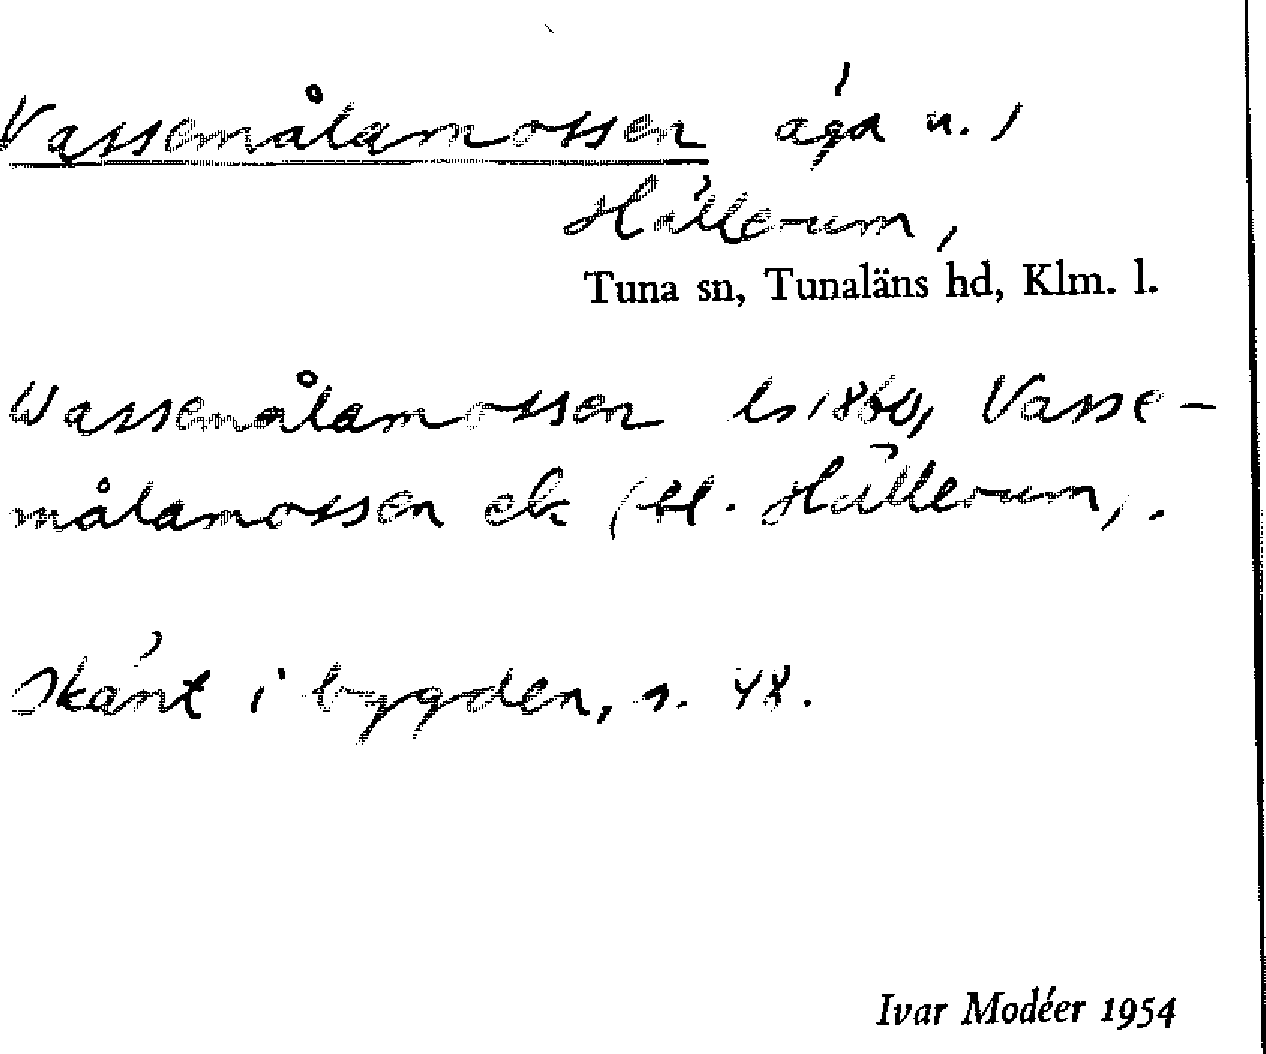 Vassemålamossen äga u. /
Hällerum,
Tuna sn, Tunaläns hd, Klm. l.
Wassemålamossen ls 1860, Vasse-
målamossen ek (bl. Hällerum).
Känt i bygden, s. 48.
Ivar Modéer 1954